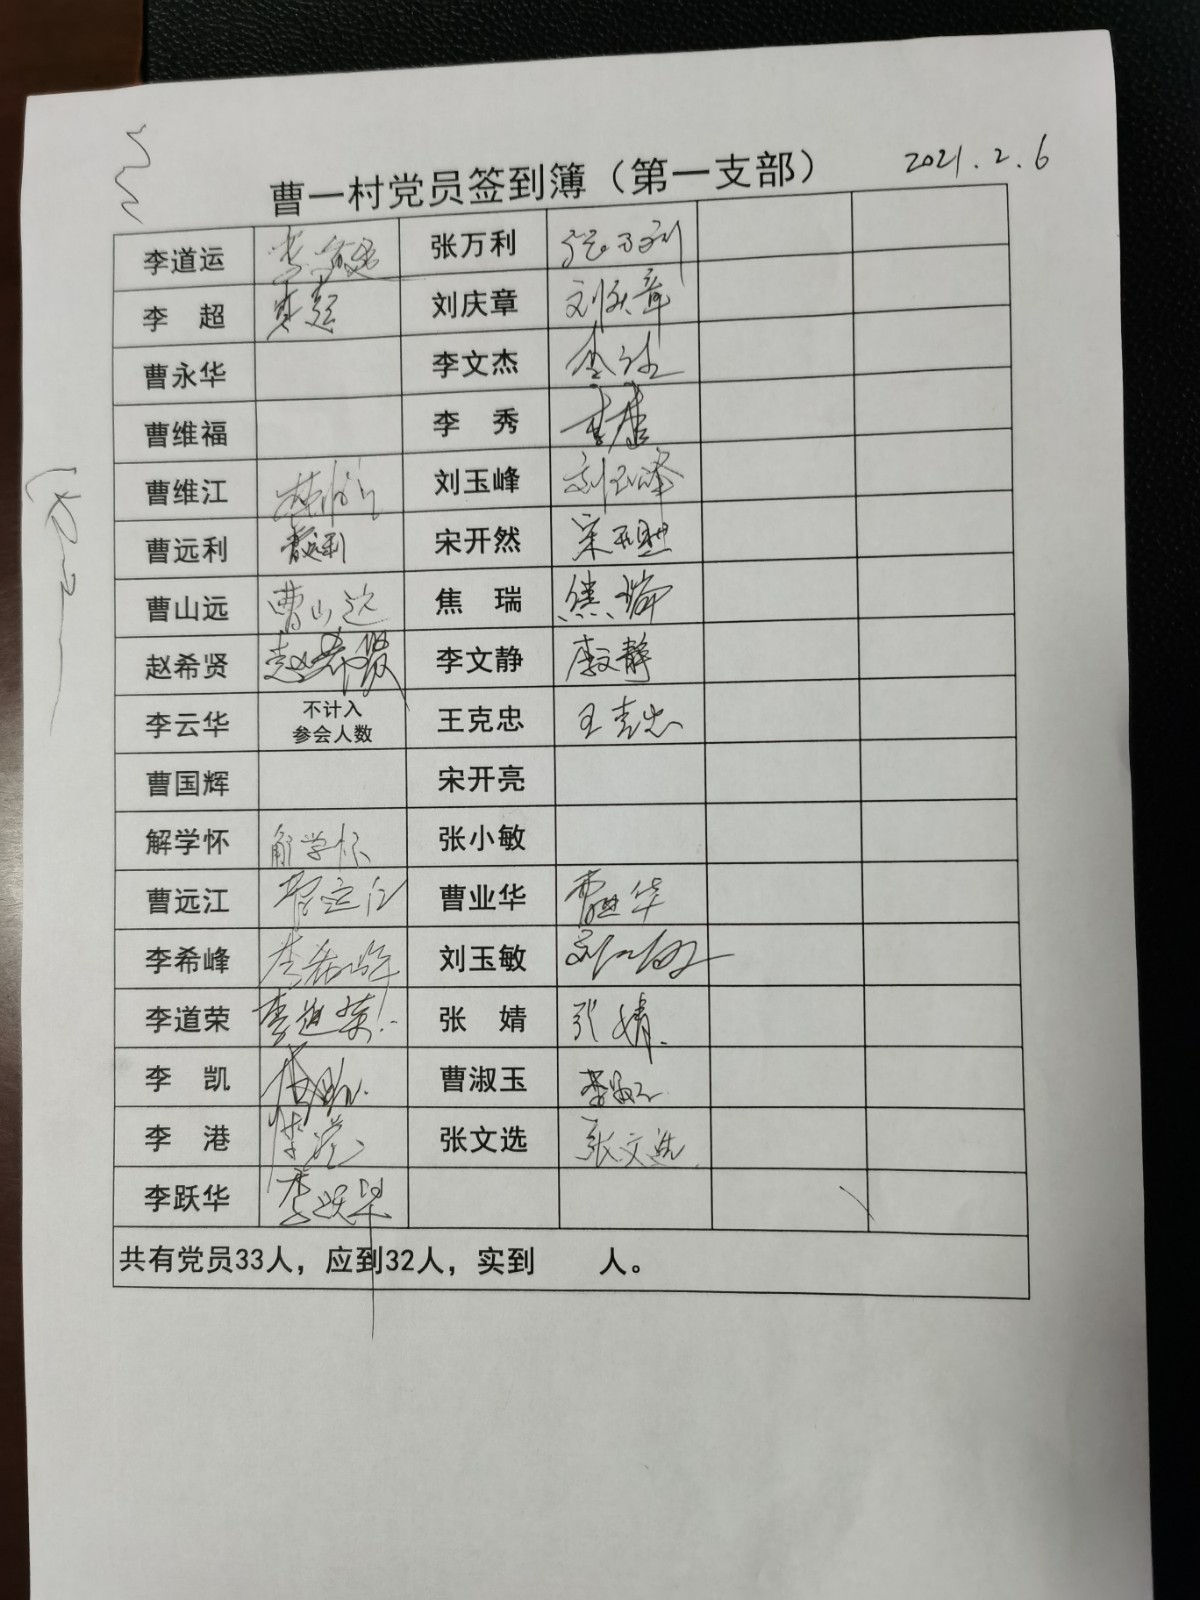 曹一村党员签到簿（第一支部）
2021.2.6
李道运 张万利 张万利
李 超 李超 刘庆章 刘庆章
曹永华 李文杰
曹维福 李 秀
曹维江 刘玉峰 刘玉峰
曹远利 曹远利 宋开然 宋开然
曹山远 曹山远 焦 瑞 焦瑞
赵希贤 赵希贤 李文静 李文静
李云华 不计入 王克忠 王克忠
参会人数
曹国辉 宋开亮
解学怀 解学怀 张小敏
曹远江 曹远江 曹业华 曹业华
李希峰 李希峰 刘玉敏
李道荣 李道荣 张 婧 张婧
李 凯 曹淑玉
李 港 李港 张文选 张文选
李跃华 李跃华
共有党员33人，应到32人，实到 人。